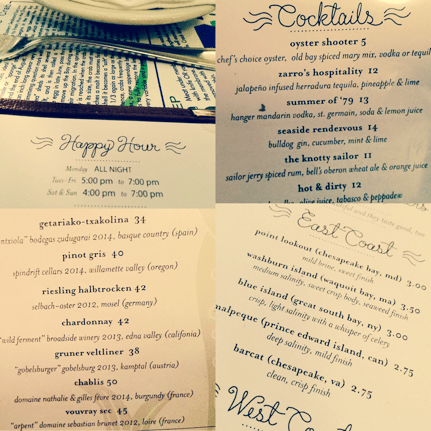 Happy Hour
Monday ALL NIGHT
Tues-Fri 5:00 pm to 7:00 pm
Sat & Sun 4:00 pm to 7:00 pm
Cocktails
oyster shooter 5
chef's choice oyster, old bay spiced mary mix, vodka or tequil
zarro's hospitality 12
jalapeño infused herradura tequila, pineapple & lime
summer of '79 13
hanger mandarin vodka, st. germain, soda & lemon juice
seaside rendezvous 14
bulldog gin, cucumber, mint & lime
the knotty sailor 11
sailor jerry spiced rum, bell's oberon wheat ale & orange juice
hot & dirty 12
olive juice, tabasco & peppadew
getariako-txakolina 34
"ntxiola" bodegas zudugarai 2014, basque country (spain)
pinot gris 40
spindrift cellars 2014, willamette valley (oregon)
riesling halbtrocken 42
selbach-oster 2012, mosel (germany)
chardonnay 42
"wild ferment" broadside winery 2013, edna valley (califonia)
gruner veltliner 38
"gobelsburger" gobelsburg 2013, kamptal (austria)
chablis 50
domaine nathalie & gilles fèvre 2014, burgundy (france)
vouvray sec 45
"arpent" domaine sebastian brunet 2012, loire (france)
East Coast
point lookout (chesapeake bay, md) 3.00
mild brine, sweet finish
washburn island (waquoit bay, ma) 3.50
medium salinity, sweet crop body, seaweed finish
blue island (great south bay, ny) 3.00
crisp, light salinity with a whisper of celery
malpeque (prince edward island, can) 2.75
deep salinity, mild finish
barcat (chesapeake, va) 2.75
clean, crisp finish
West Coast